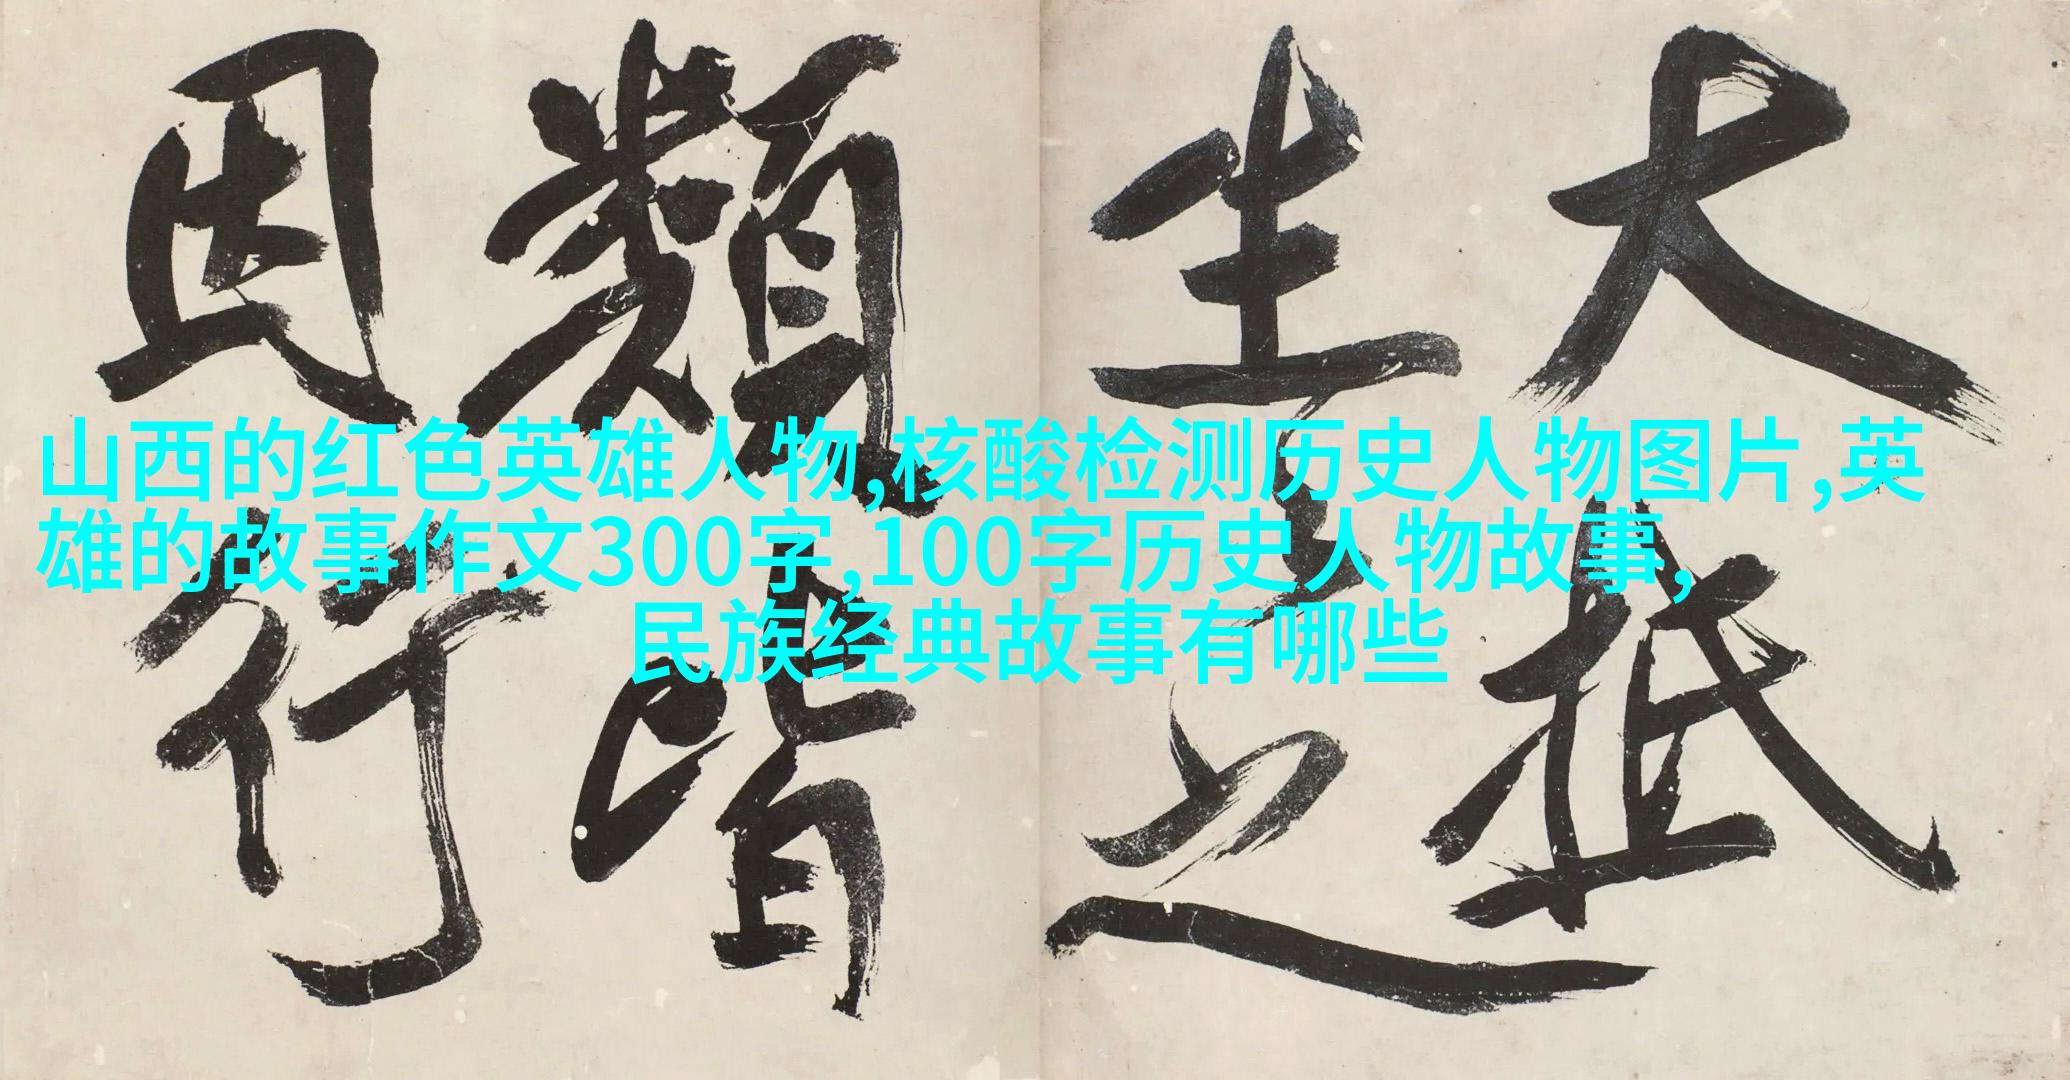 大抵
生之
類皆
因行
山西的红色英雄人物,核酸检测历史人物图片,英
雄的故事作文300字,100字历史人物故事,
民族经典故事有哪些